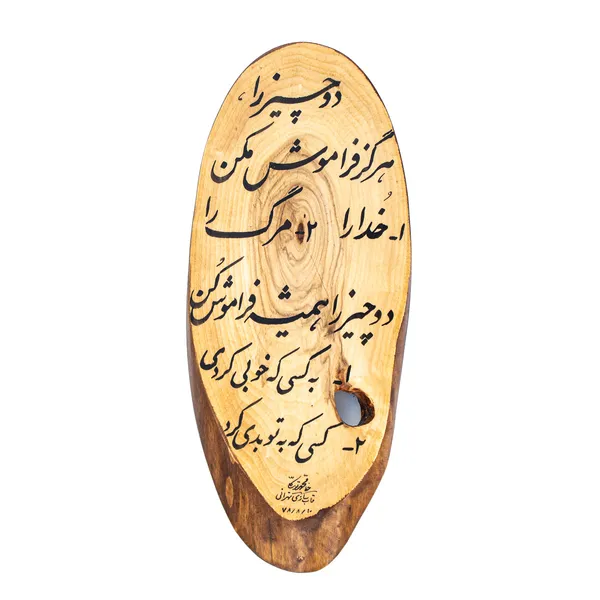 دو چیز را،
هرگز فراموش مکن
۱- خُدا را ۲- مرگ را
دو چیز را همیشه فراموش کُن
۱- به کسی که خوبی کردی
۲- کسی که به تو بدی کرد
۷۸/۸/۱۰